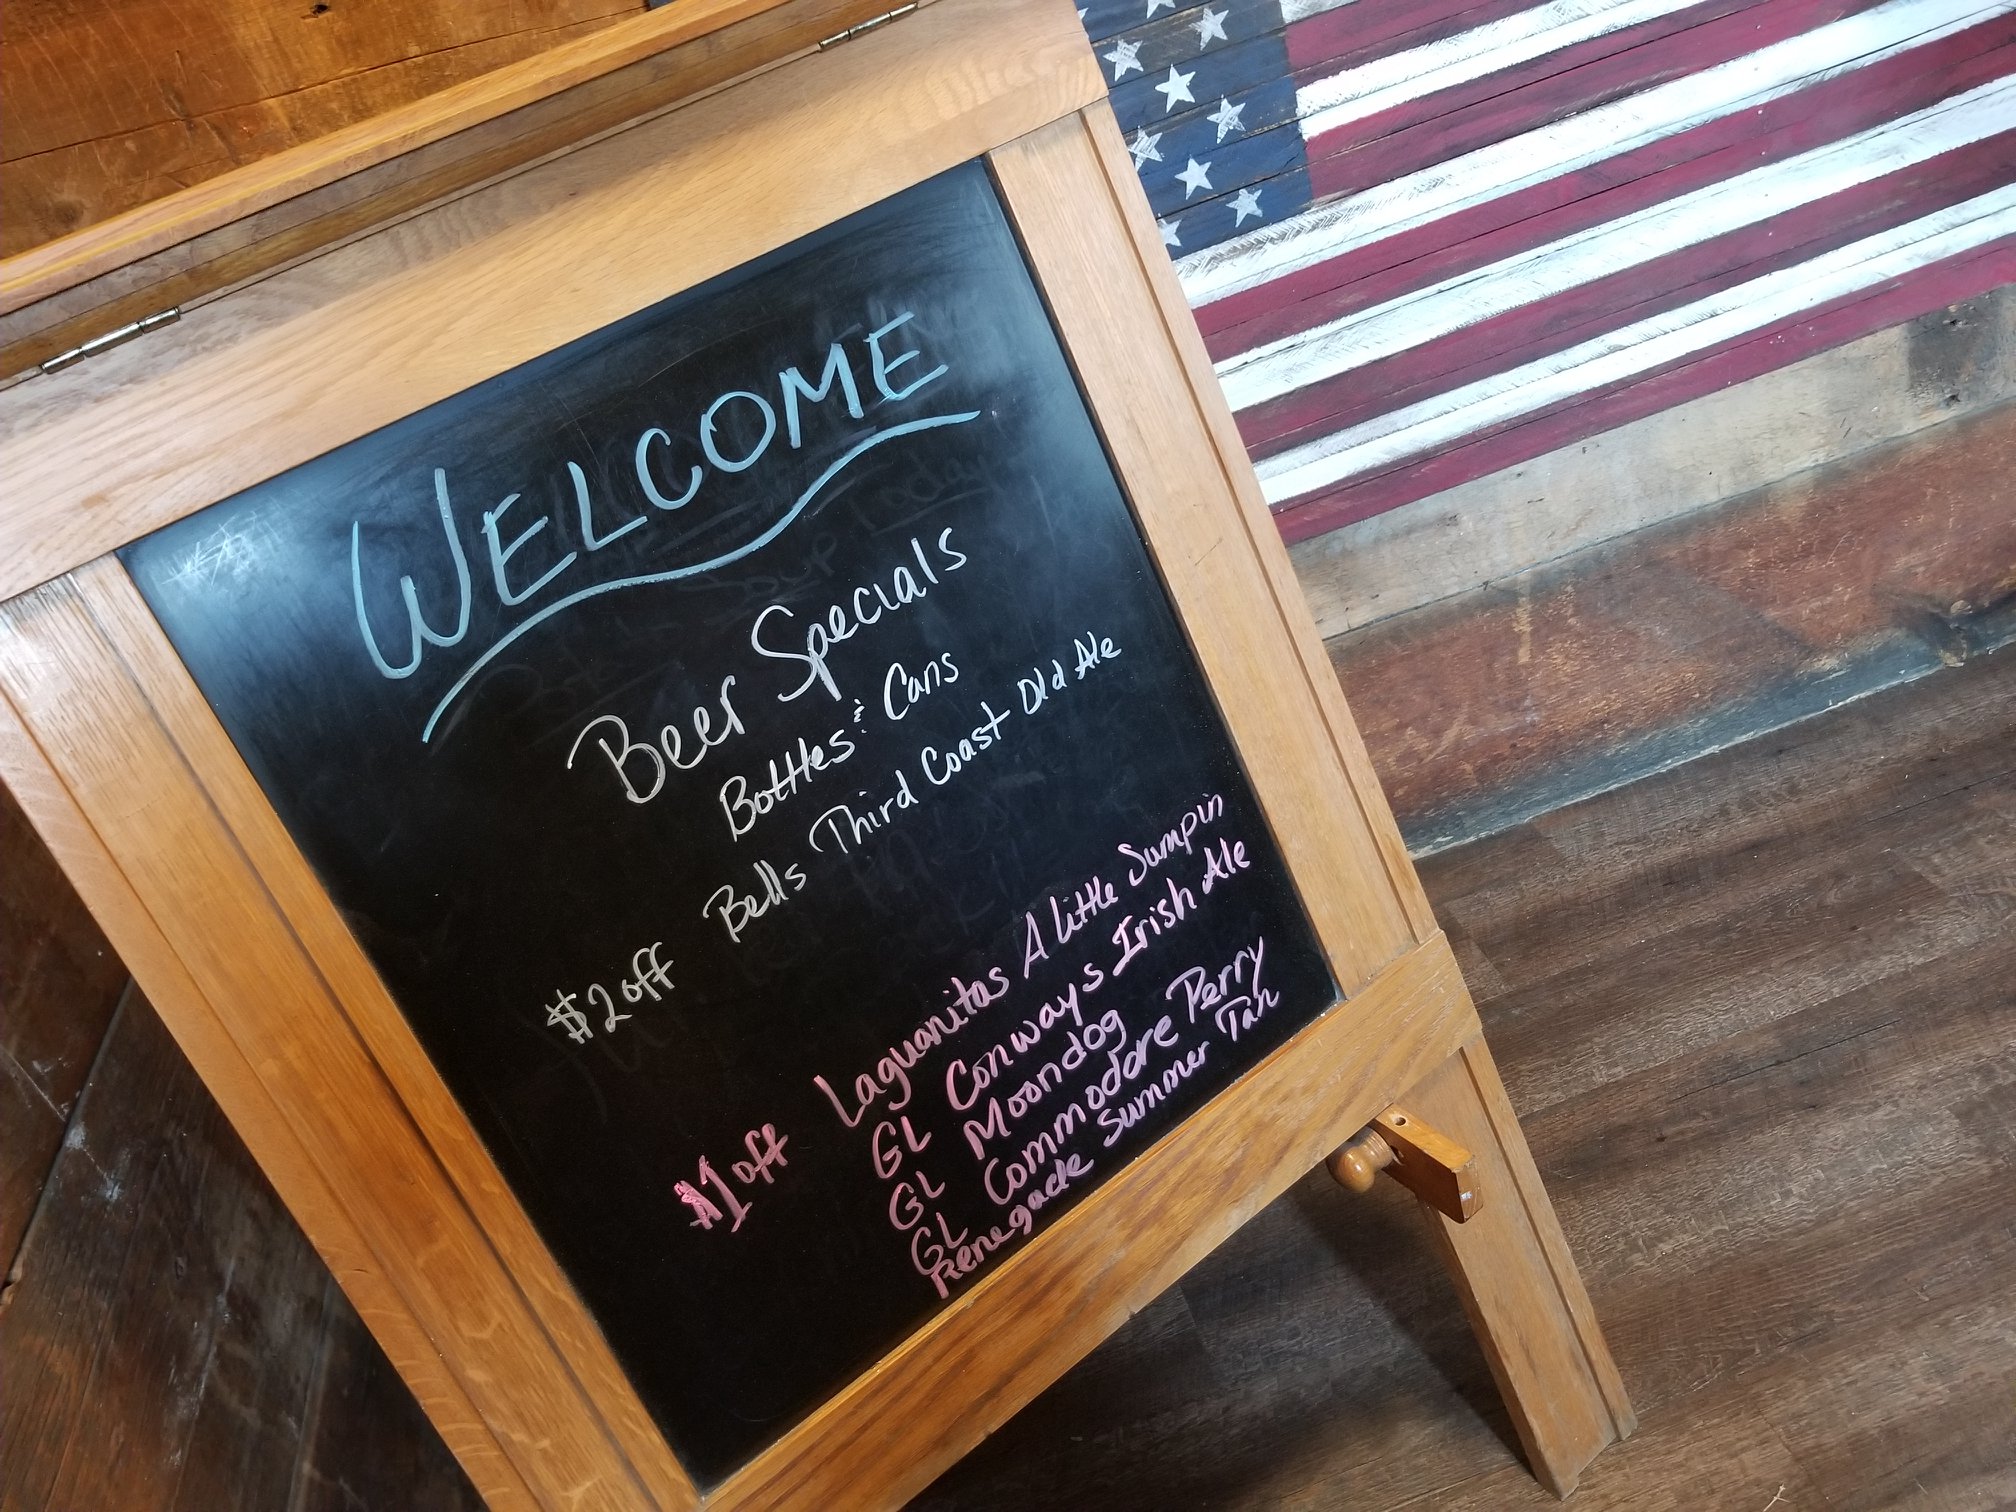 WELCOME
Beer Specials
Bottles & Cans
$2 off Bells Third Coast Old Ale
$1 off Laguanitas A Little Sumpin
GL Conways Irish Ale
GL Moondog
GL Commodore Perry
Renegade Summer Tan
Today
Soup